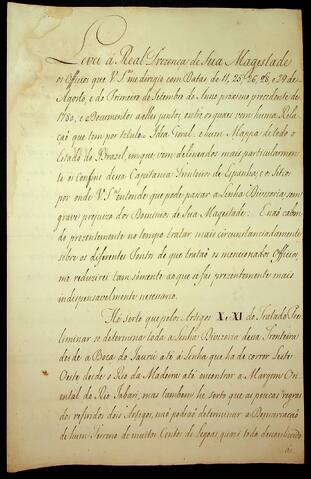 Levei á Real Prezença de Sua Magestade
os Officios que V. S.ª me dirigio com Datas de 11, 25, 26, 28, e 29 de
Agosto, e do Primeiro de Setembro do Anno proximo precedente de
1780, e Documentos a elles juntos, entre os quaes vem huma Rela
çaõ que tem por titulo = Idea Geral = e hum Mappa de todo o
Estado do Brazil, em que vem delineados mais particularmen
te os Confins dessa Capitania limitrofes de Espanha; e os Sitios
por onde V. S.ª entende que póde passar a Linha Divizoria, sem
grave prejuizo dos Dominios de Sua Magestade: E naõ caben
do prezentemente no tempo tratar mais circunstanciadamente
sobre os diferentes Pontos de que trataõ os mencionados Officios,
me reduzirei taõ sómente ao que se faz prezentemente mais
indispensavelmente necessario.
He certo que pelos Artigos X e XI do Tratado Pre
liminar se determina toda a Linha Divizoria dessa Fronteira
desde a Boca do Jaurú até á Linha que ha de correr Leste
Oeste desde o Rio da Madeira até encontrar a Margem Ori
ental do Rio Jabarí; mas tambem he certo que as poucas regras
dos referidos dois Artigos, naõ podiaõ determinar a Demarcaçaõ
de hum Terreno de muitos Centos de Legoas, quazi todo desconhecido